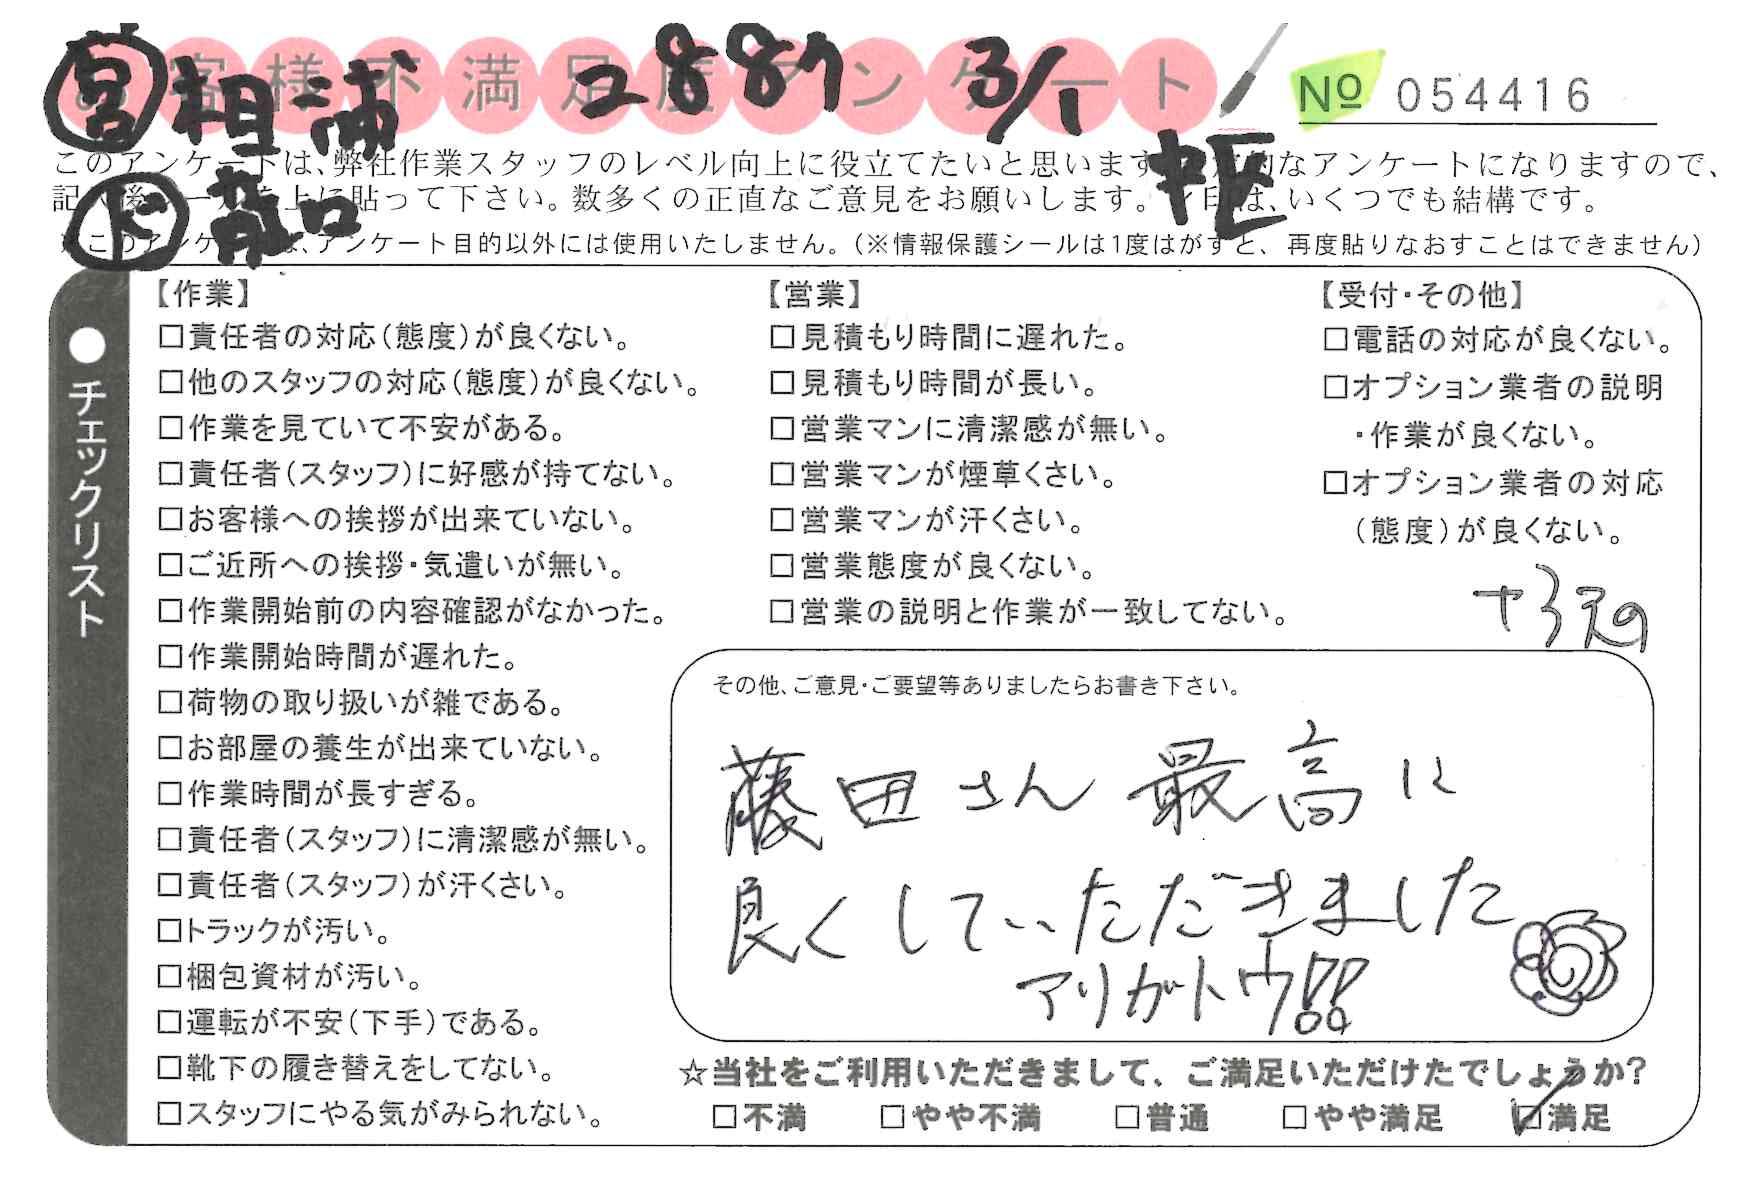 お客様不満足度アンケート
宮 相浦 2887 3/1
№ 054416
このアンケートは、弊社作業スタッフのレベル向上に役立てたいと思います なアンケートになりますので、
記入後シールを上に貼って下さい。数多くの正直なご意見をお願いします。 印は、いくつでも結構です。
※このアンケートは、アンケート目的以外には使用いたしません。(※情報保護シールは1度はがすと、再度貼りなおすことはできません)
ド 口
●チェックリスト
【作業】
□責任者の対応(態度)が良くない。
□他のスタッフの対応(態度)が良くない。
□作業を見ていて不安がある。
□責任者(スタッフ)に好感が持てない。
□お客様への挨拶が出来ていない。
□ご近所への挨拶・気遣いが無い。
□作業開始前の内容確認がなかった。
□作業開始時間が遅れた。
□荷物の取り扱いが雑である。
□お部屋の養生が出来ていない。
□作業時間が長すぎる。
□責任者(スタッフ)に清潔感が無い。
□責任者(スタッフ)が汗くさい。
□トラックが汚い。
□梱包資材が汚い。
□運転が不安(下手)である。
□靴下の履き替えをしてない。
□スタッフにやる気がみられない。
【営業】
□見積もり時間に遅れた。
□見積もり時間が長い。
□営業マンに清潔感が無い。
□営業マンが煙草くさい。
□営業マンが汗くさい。
□営業態度が良くない。
□営業の説明と作業が一致してない。
【受付・その他】
□電話の対応が良くない。
□オプション業者の説明
・作業が良くない。
□オプション業者の対応
(態度)が良くない。
その他、ご意見・ご要望等ありましたらお書き下さい。
藤田さん 最高に
良くしていただきました
アリガトウ!!
☆当社をご利用いただきまして、ご満足いただけたでしょうか?
□不満 □やや不満 □普通 □やや満足 ☑満足